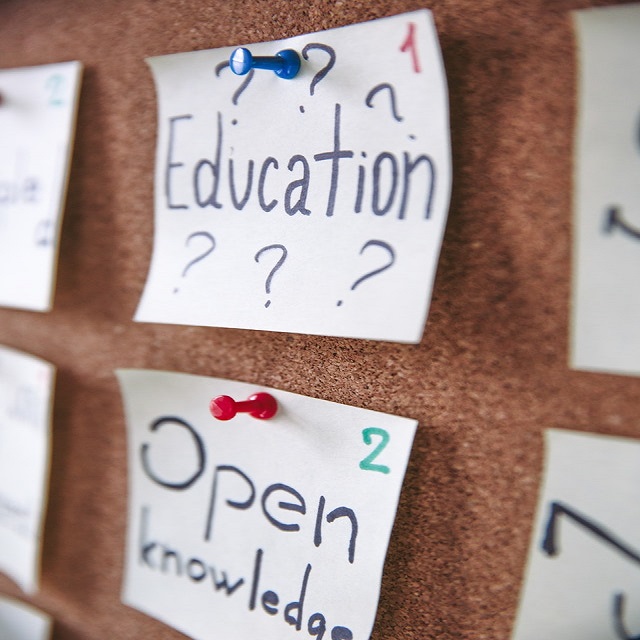 1
? ? ?
Education
? ? ?
2
Open
knowledge
2